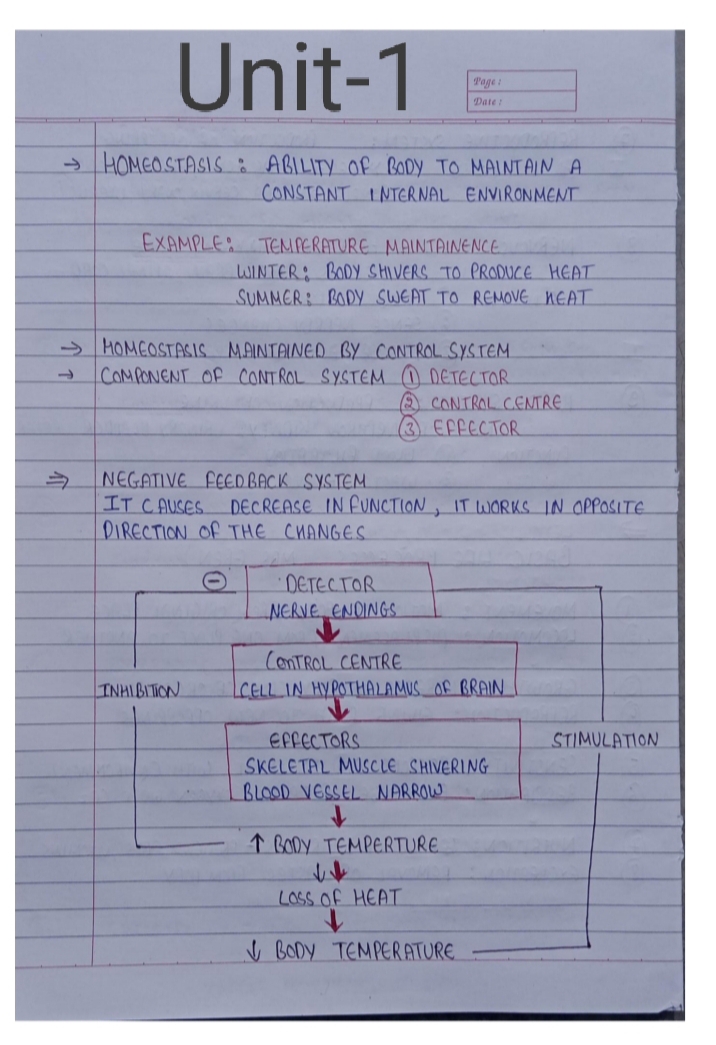 Unit-1
Page:
Date:
→ HOMEOSTASIS : ABILITY OF BODY TO MAINTAIN A
CONSTANT INTERNAL ENVIRONMENT
EXAMPLE: TEMPERATURE MAINTAINENCE
WINTER: BODY SHIVERS TO PRODUCE HEAT
SUMMER: BODY SWEAT TO REMOVE HEAT
→ HOMEOSTASIS MAINTAINED BY CONTROL SYSTEM
→ COMPONENT OF CONTROL SYSTEM ① DETECTOR
② CONTROL CENTRE
③ EFFECTOR
⇒ NEGATIVE FEEDBACK SYSTEM
IT CAUSES DECREASE IN FUNCTION, IT WORKS IN OPPOSITE
DIRECTION OF THE CHANGES
⊖ DETECTOR
NERVE ENDINGS
CONTROL CENTRE
INHIBITION CELL IN HYPOTHALAMUS OF BRAIN
EFFECTORS STIMULATION
SKELETAL MUSCLE SHIVERING
BLOOD VESSEL NARROW
↑ BODY TEMPERTURE
↓↓
LOSS OF HEAT
↓ BODY TEMPERATURE